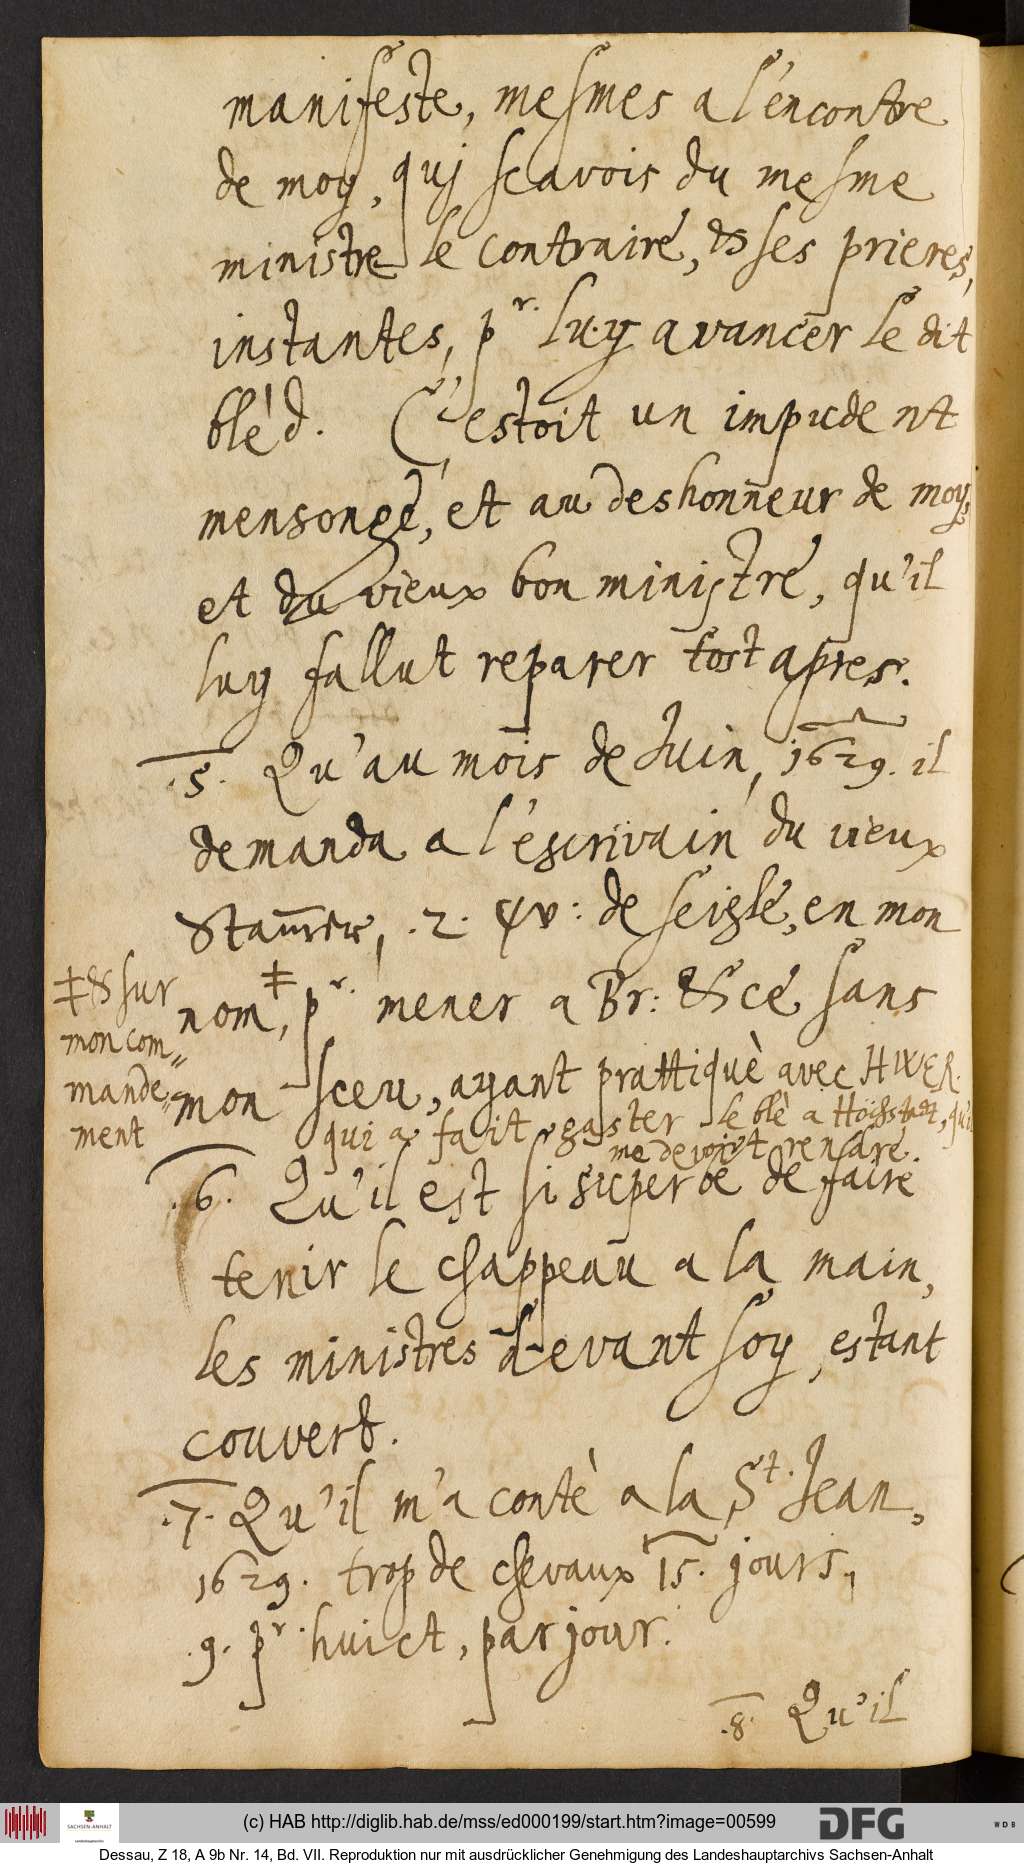 manifeste, mesmes a l'encontre
de moy, quj scavois du mesme
ministre le contraire, & ses prieres,
instantes, pr. luy avancer le dit
blèd. C'estoit un impudent
mensonge, et au deshonneur de moy,
et du vieux bon ministre, qu'il
luy fallut reparer tost apres.
.5. Qu'au mois de Juin, 1629. il
demanda a l'escrivain du vieux
.2. de seigle, en mon
nom,‡ pr. mener a Br: & ce sans
‡& sur
mon com=
mande=
ment
mon sceu, ayant prattiquè avec
qui a fait gaster le blè a
me devoit rendre.
.6. Qu'il est si superbe de faire
tenir le chappeau a la main,
les ministres devant soy, estant
couvert.
.7. Qu'il m'a contè a la St. Jean,
1629. trop de chevaux 15. jours,
.9. pr. huict, par jour.
.8. Qu'il
(c) HAB http://diglib.hab.de/mss/ed000199/start.htm?image=00599
SACHSEN-ANHALT
DFG
W D B
Dessau, Z 18, A 9b Nr. 14, Bd. VII. Reproduktion nur mit ausdrücklicher Genehmigung des Landeshauptarchivs Sachsen-Anhalt